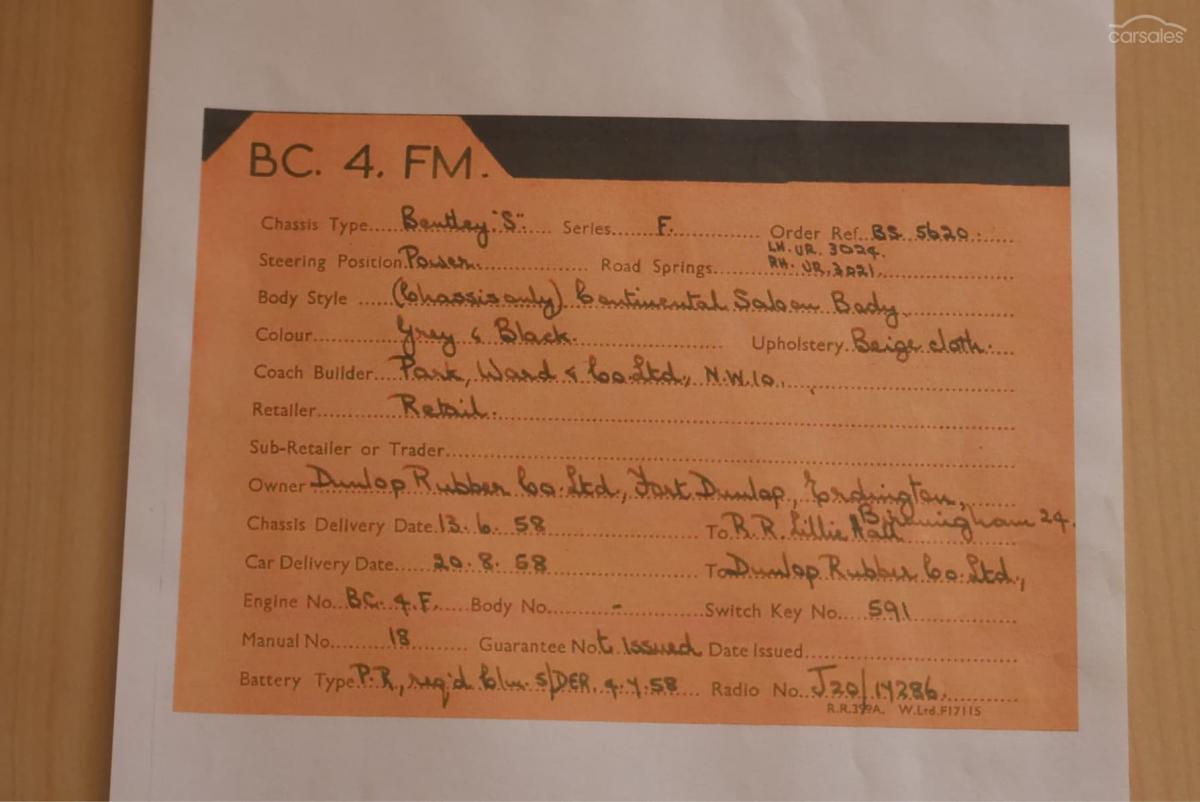 carsales
BC. 4. FM.
Chassis Type.....Bentley "S"..... Series......F.............. Order Ref...BS 5620.
LH. UR. 3024.
Steering Position.Power................. Road Springs......RH. UR. 3021.
Body Style .....(Chassis only) Continental Saloon Body.
Colour...........Grey & Black. Upholstery..Beige cloth.
Coach Builder....Park, Ward & Co. Ltd., N.W.10.
Retailer...........Retail.
Sub-Retailer or Trader
Owner Dunlop Rubber Co. Ltd., Fort Dunlop, Erdington,
Birmingham 24.
Chassis Delivery Date.13. 6. 58 To R.R. Lillie Hall
Car Delivery Date.....20. 8. 58 To Dunlop Rubber Co. Ltd.,
Engine No...BC. 4. F..... Body No..........-.............Switch Key No....591
Manual No..........18.......... Guarantee Not Issued Date Issued
Battery Type P.R., req'd S/DER. 4.7.58... Radio No..J20/14286.
R.R.399A. W.Ltd.F17115